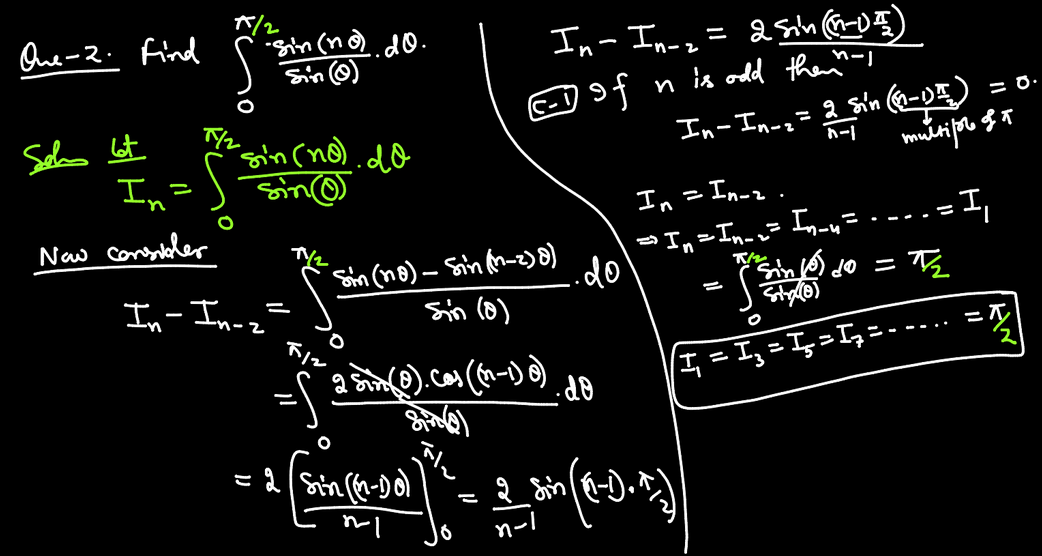 Que-2. Find ∫₀^{π/2} sin(nθ)/sin(θ) . dθ.
Soln let
Iₙ = ∫₀^{π/2} sin(nθ)/sin(θ) . dθ
Now consider
Iₙ - Iₙ₋₂ = ∫₀^{π/2} (sin(nθ) - sin(n-2)θ)/sin(θ) . dθ
= ∫₀^{π/2} 2 sin(θ).cos((n-1)θ)/sin(θ) . dθ
= 2 [sin((n-1)θ)/(n-1)]₀^{π/2} = 2/(n-1) sin((n-1).π/2)
Iₙ - Iₙ₋₂ = 2 sin((n-1)π/2)/(n-1)
C-1 If n is odd then
Iₙ - Iₙ₋₂ = 2/(n-1) sin((n-1)π/2) = 0.
multiple of π
Iₙ = Iₙ₋₂ .
⇒ Iₙ = Iₙ₋₂ = Iₙ₋₄ = ..... = I₁
= ∫₀^{π/2} sin(θ)/sin(θ) dθ = π/2
I₁ = I₃ = I₅ = I₇ = ...... = π/2